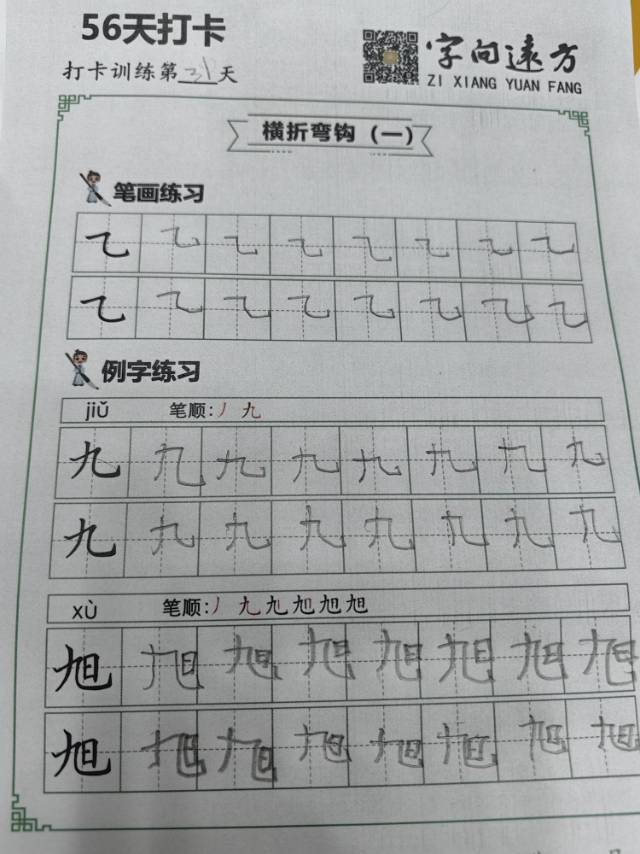 56天打卡
打卡训练第31天
字向远方
ZI XIANG YUAN FANG
横折弯钩（一）
笔画练习
乙 乙 乙 乙 乙 乙 乙 乙
乙 乙 乙 乙 乙 乙 乙 乙
例字练习
jiǔ 笔顺：丿 九
九 九 九 九 九 九 九 九
九 九 九 九 九 九 九 九
xù 笔顺：丿 九 九 旭 旭 旭
旭 旭 旭 旭 旭 旭 旭 旭
旭 旭 旭 旭 旭 旭 旭 旭